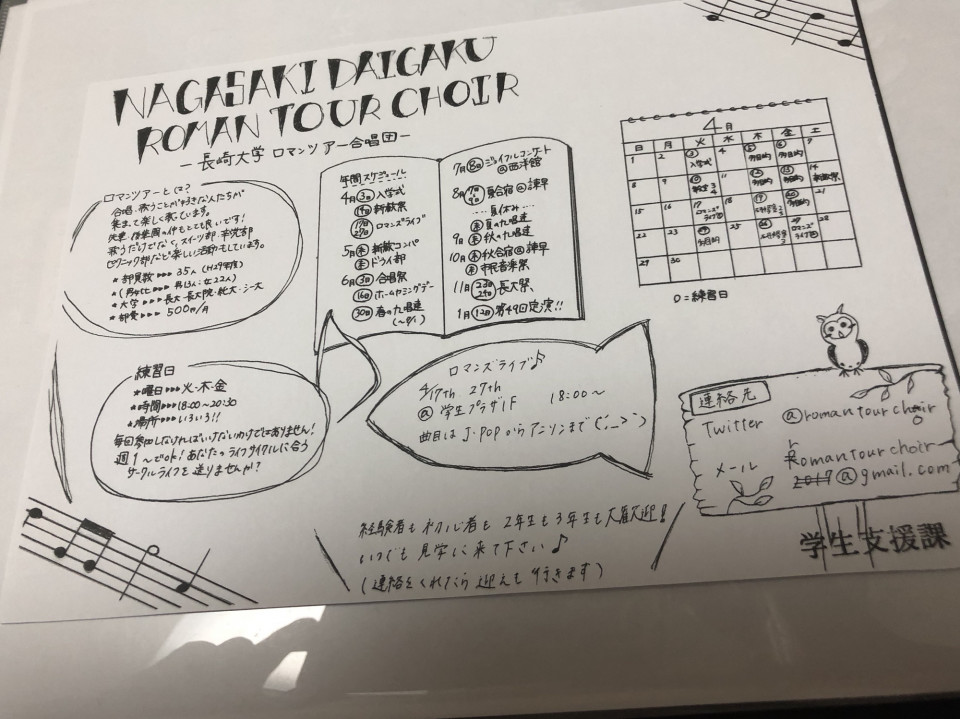 NAGASAKI DAIGAKU
ROMAN TOUR CHOIR
-長崎大学 ロマンツアー合唱団-
ロマンツアーとは?
合唱・歌うことが好きな人たちが
集まって楽しく歌っています。
先輩・後輩間の仲もとても良いです!
歌うだけでなく、スイーツ部・
ピクニック部など楽しい活動もしています。
*部員数▸▸▸35人(H29年度)
*(男女比▸▸▸男13人:女22人)
*大学▸▸▸長大・長大院・純大・シー大
*部費▸▸▸500円/月
年間スケジュール
4月 3㊋ 入学式
14㊏ 新歓祭
17㊋ 27㊎ ロマンズライブ
5月 新歓コンパ
ドライ部
6月 3㊐ 合唱祭
16㊏ ホームカミングデー
30㊏ 春の九唱連
(~7/1)
7月 8㊐ ジョイフルコンサート
@西洋館
8月 夏合宿@諫早
夏休み
夏の九唱連
9月 秋の九唱連
10月 秋合宿@諫早
市民音楽祭
11月 長大祭
1月 12㊐ 第49回定演!!
4月
日 月 火 水 木 金 土
1 2 3 入学式 4 5 多目的 6 多目的 7
8 9 10 11 12 多目的 13 多目的 14 新歓祭
15 16 17 ロマンズライブ① 18 19 20 多目的 21
22 23 24 多目的 25 26 27 ロマンズライブ② 28
29 30
○=練習日
練習日
*曜日▸▸▸火・木・金
*時間▸▸▸18:00~20:30
*場所▸▸▸いろいろ!!
毎旬参加しなければいけないわけではありません!
週1~でOK!あなたのライフサイクルに合う
サークルライフを送りませんか?
ロマンズライブ♪
4/17th 27th
@学生プラザ1F 18:00~
曲目はJ-POPからアニソンまで(・_・>`)
連絡先
Twitter @romantourchoir
メール romantourchoir
2017@gmail.com
経験者も初心者も2年生も3年生も大歓迎!
いつでも見学に来て下さい♪
(連絡をくれたら迎えも行きます)
学生支援課